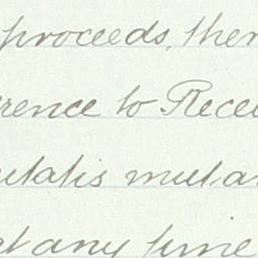 proceeds, ther
rence to Recei
utatis mutan
at any time